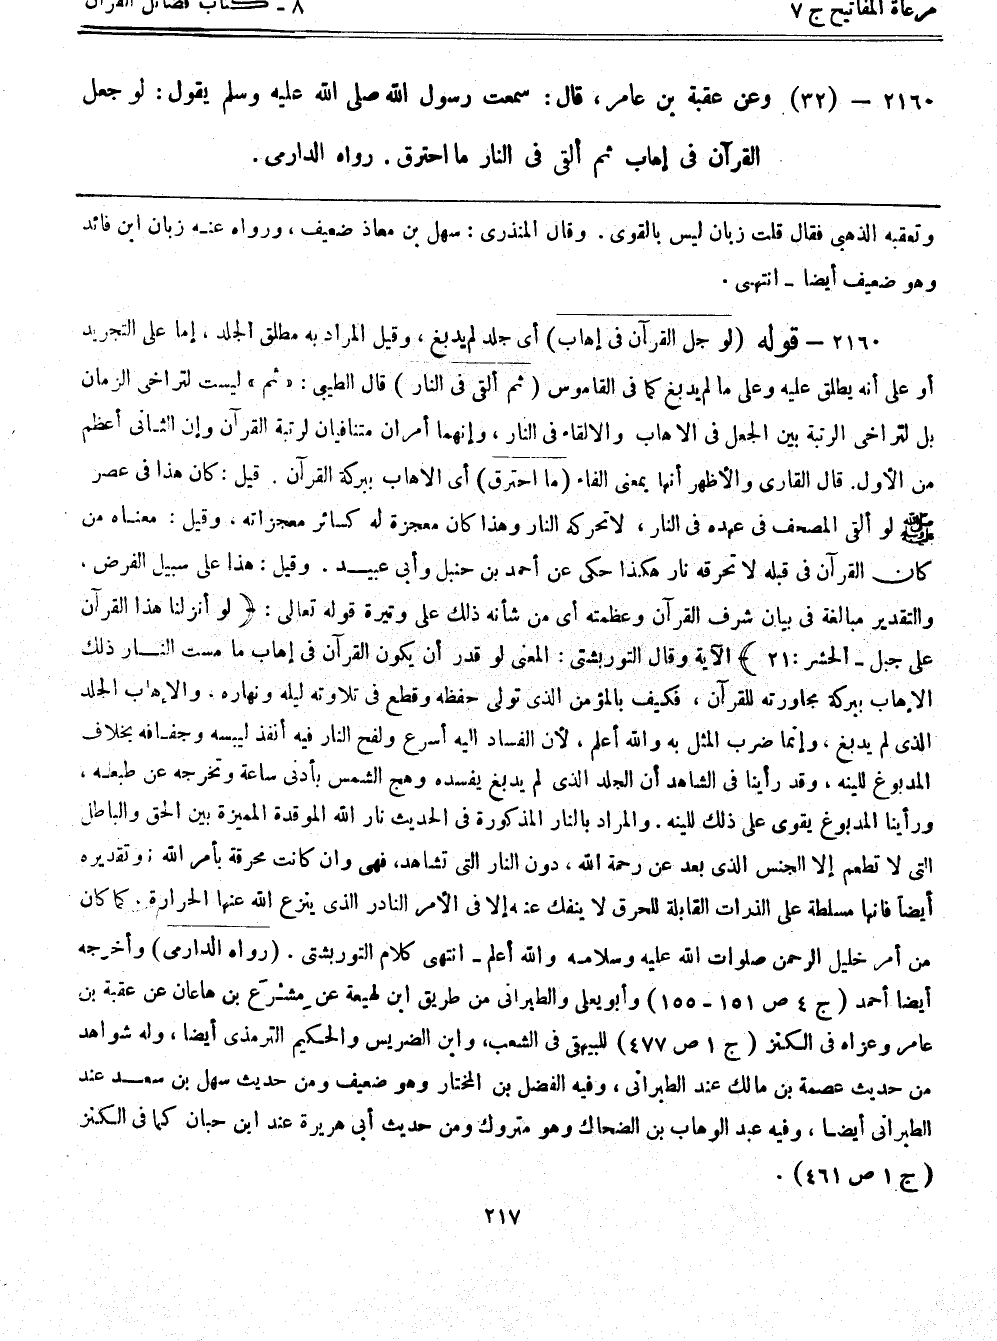 مرعاة المفاتيح ج ٧ ٨ - كتاب فضائل القرآن
٢١٦٠ – (٣٢) وعن عقبة بن عامر ، قال : سمعت رسول الله صلى الله عليه وسلم يقول : لو جعل
القرآن فى إهاب ثم ألقى فى النار ما احترق . رواه الدارمى .
وتعقبه الذهبى فقال قلت زبان ليس بالقوى . وقال المنذرى : سهل بن معاذ ضعيف ، ورواه عنه زبان ابن فائد
وهو ضعيف أيضا ـ انتهى .
٢١٦٠ – قوله (لو جل القرآن فى إهاب) أى جلد لم يدبغ ، وقيل المراد به مطلق الجلد ، إما على التجريد
أو على أنه يطلق عليه وعلى ما لم يدبغ كما فى القاموس ( ثم ألقى فى النار ) قال الطيبى : « ثم » ليست لتراخى الزمان
بل لتراخى الرتبة بين الجعل فى الاهاب والالقاء فى النار ، وإنهما أمران متنافيان لرتبة القرآن وإن الثانى أعظم
من الأول. قال القارى والأظهر أنها بمعنى الفاء (ما احترق) أى الاهاب ببركة القرآن . قيل : كان هذا فى عصر
ﷺ لو ألقى المصحف فى عهده فى النار ، لاتحركه النار وهذا كان معجزة له كسائر معجزاته ، وقيل : معناه من
كان القرآن فى قبله لا تحرقه نار هكذا حكى عن أحمد بن حنبل وأبى عبيد . وقيل : هذا على سبيل الفرض ،
والتقدير مبالغة فى بيان شرف القرآن وعظمته أى من شأنه ذلك على وتيرة قوله تعالى : ﴿ لو أنزلنا هذا القرآن
على جبل ـ الحشر : ٢١ ﴾ الآية وقال التوربشتى : المعنى لو قدر أن يكون القرآن فى إهاب ما مست النار ذلك
الإهاب ببركة مجاورته للقرآن ، فكيف بالمؤمن الذى تولى حفظه وقطع فى تلاوته ليله ونهاره . والإهاب الجلد
الذى لم يدبغ ، وإنما ضرب المثل به والله أعلم ، لأن الفساد اليه أسرع ولفح النار فيه أنفذ ليبسه وجفافه بخلاف
المدبوغ للينه ، وقد رأينا فى الشاهد أن الجلد الذى لم يدبغ يفسده وهج الشمس بأدنى ساعة وتخرجه عن طبعه ،
ورأينا المدبوغ يقوى على ذلك للينه . والمراد بالنار المذكورة فى الحديث نار الله الموقدة المميزة بين الحق والباطل
التى لا تطعم إلا الجنس الذى بعد عن رحمة الله ، دون النار التى تشاهد، فهى وان كانت محرقة بأمر الله ، وتقديره
أيضاً فانها مسلطة على الذرات القابلة للحرق لا ينفك عنه إلا فى الأمر النادر الذى ينزع الله عنها الحرارة . كما كان
من أمر خليل الرحمن صلوات الله عليه وسلامه والله أعلم ـ انتهى كلام التوربشتى . (رواه الدارمى) وأخرجه
أيضا أحمد ( ج ٤ ص ١٥١ - ١٥٥) وأبو يعلى والطبرانى من طريق ابن لهيعة عن مِشْرَح بن هاعان عن عقبة بن
عامر وعزاه فى الكنز ( ج ١ ص ٤٧٧) للبيهقى فى الشعب، وابن الضريس والحكيم الترمذى أيضا ، وله شواهد
من حديث عصمة بن مالك عند الطبرانى ، وفيه الفضل بن المختار وهو ضعيف ومن حديث سهل بن سعد عند
الطبرانى أيضا ، وفيه عبد الوهاب بن الضحاك وهو متروك ومن حديث أبى هريرة عند ابن حبان كما فى الكنز
(ج ١ ص ٤٦١) .
٢١٧